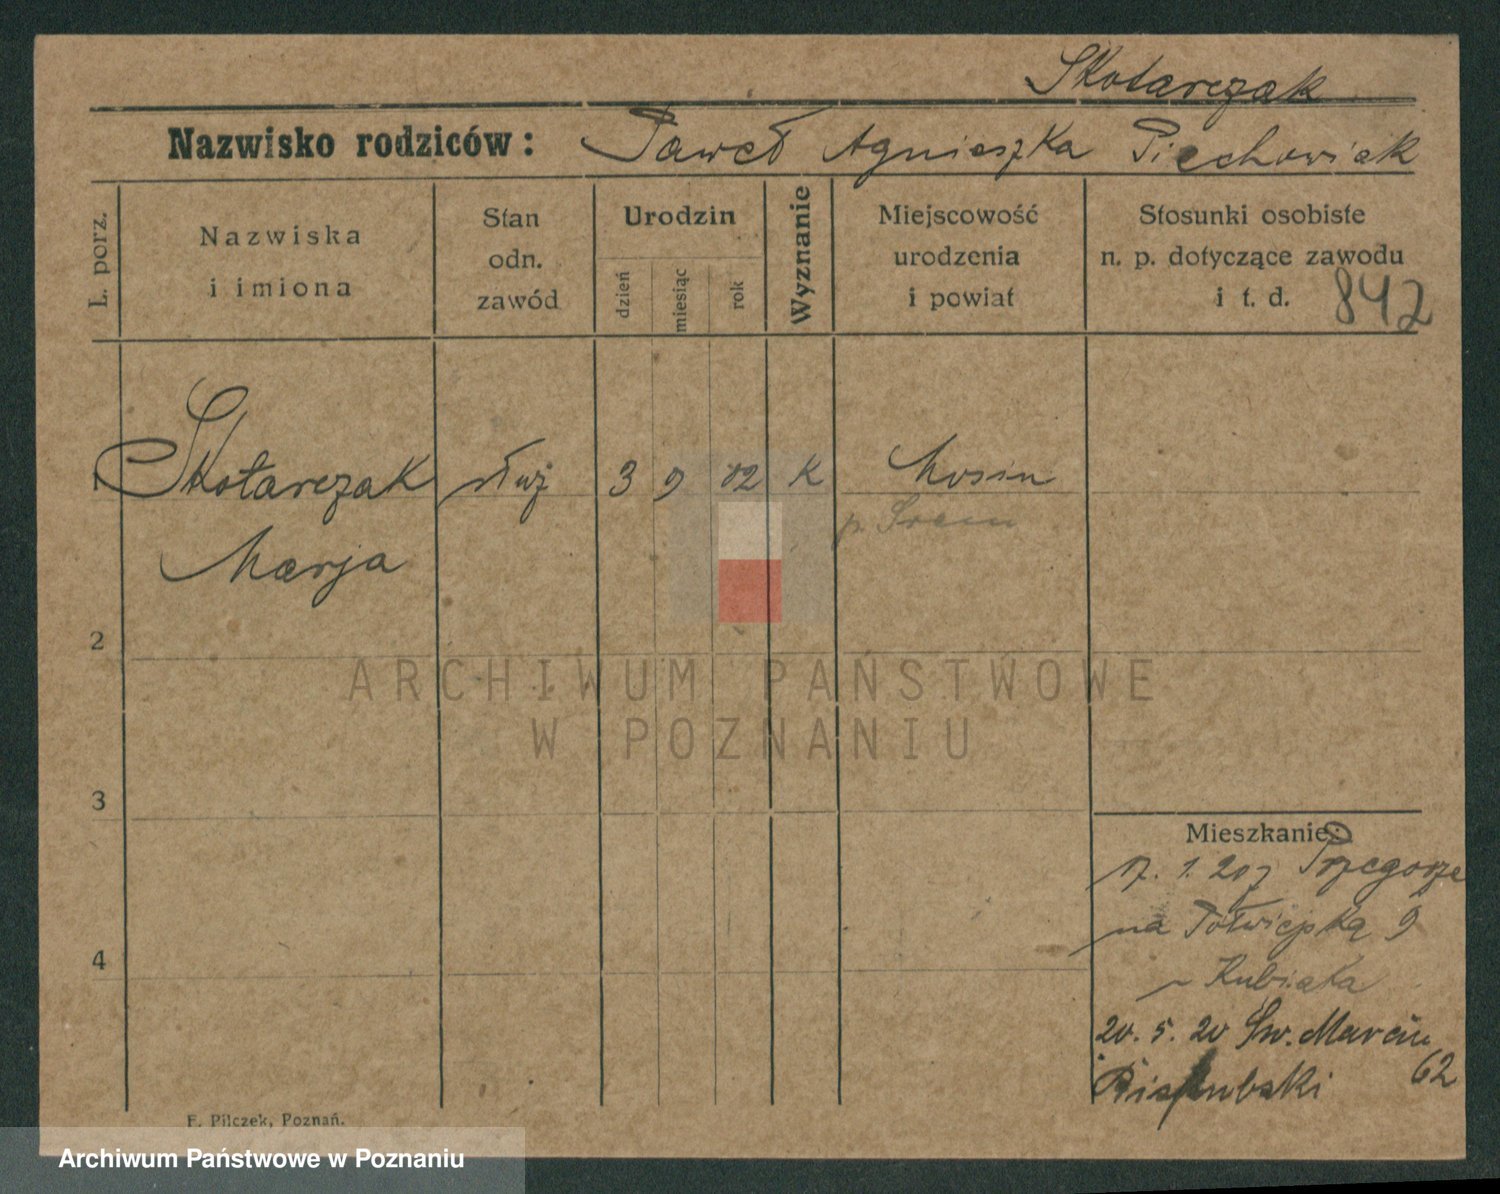 Skotarczak
Nazwisko rodziców: Paweł Agnieszka Piechowiak
L. porz.
Nazwiska
i imiona
Stan
odn.
zawód
Urodzin
dzień
miesiąc
rok
Wyznanie
Miejscowość
urodzenia
i powiat
Stosunki osobiste
n. p. dotyczące zawodu
i t. d.
842
1 Skotarczak służ 3 9 02 K Mosin
p. Śrem
Marja
2
ARCHIWUM PAŃSTWOWE
W POZNANIU
3
Mieszkanie:
1. 20 z Przegorze
na Półwiejską 9
Kubiaka
4
20. 5. 20 Św. Marcin
62
F. Pilczek, Poznań.
Archiwum Państwowe w Poznaniu